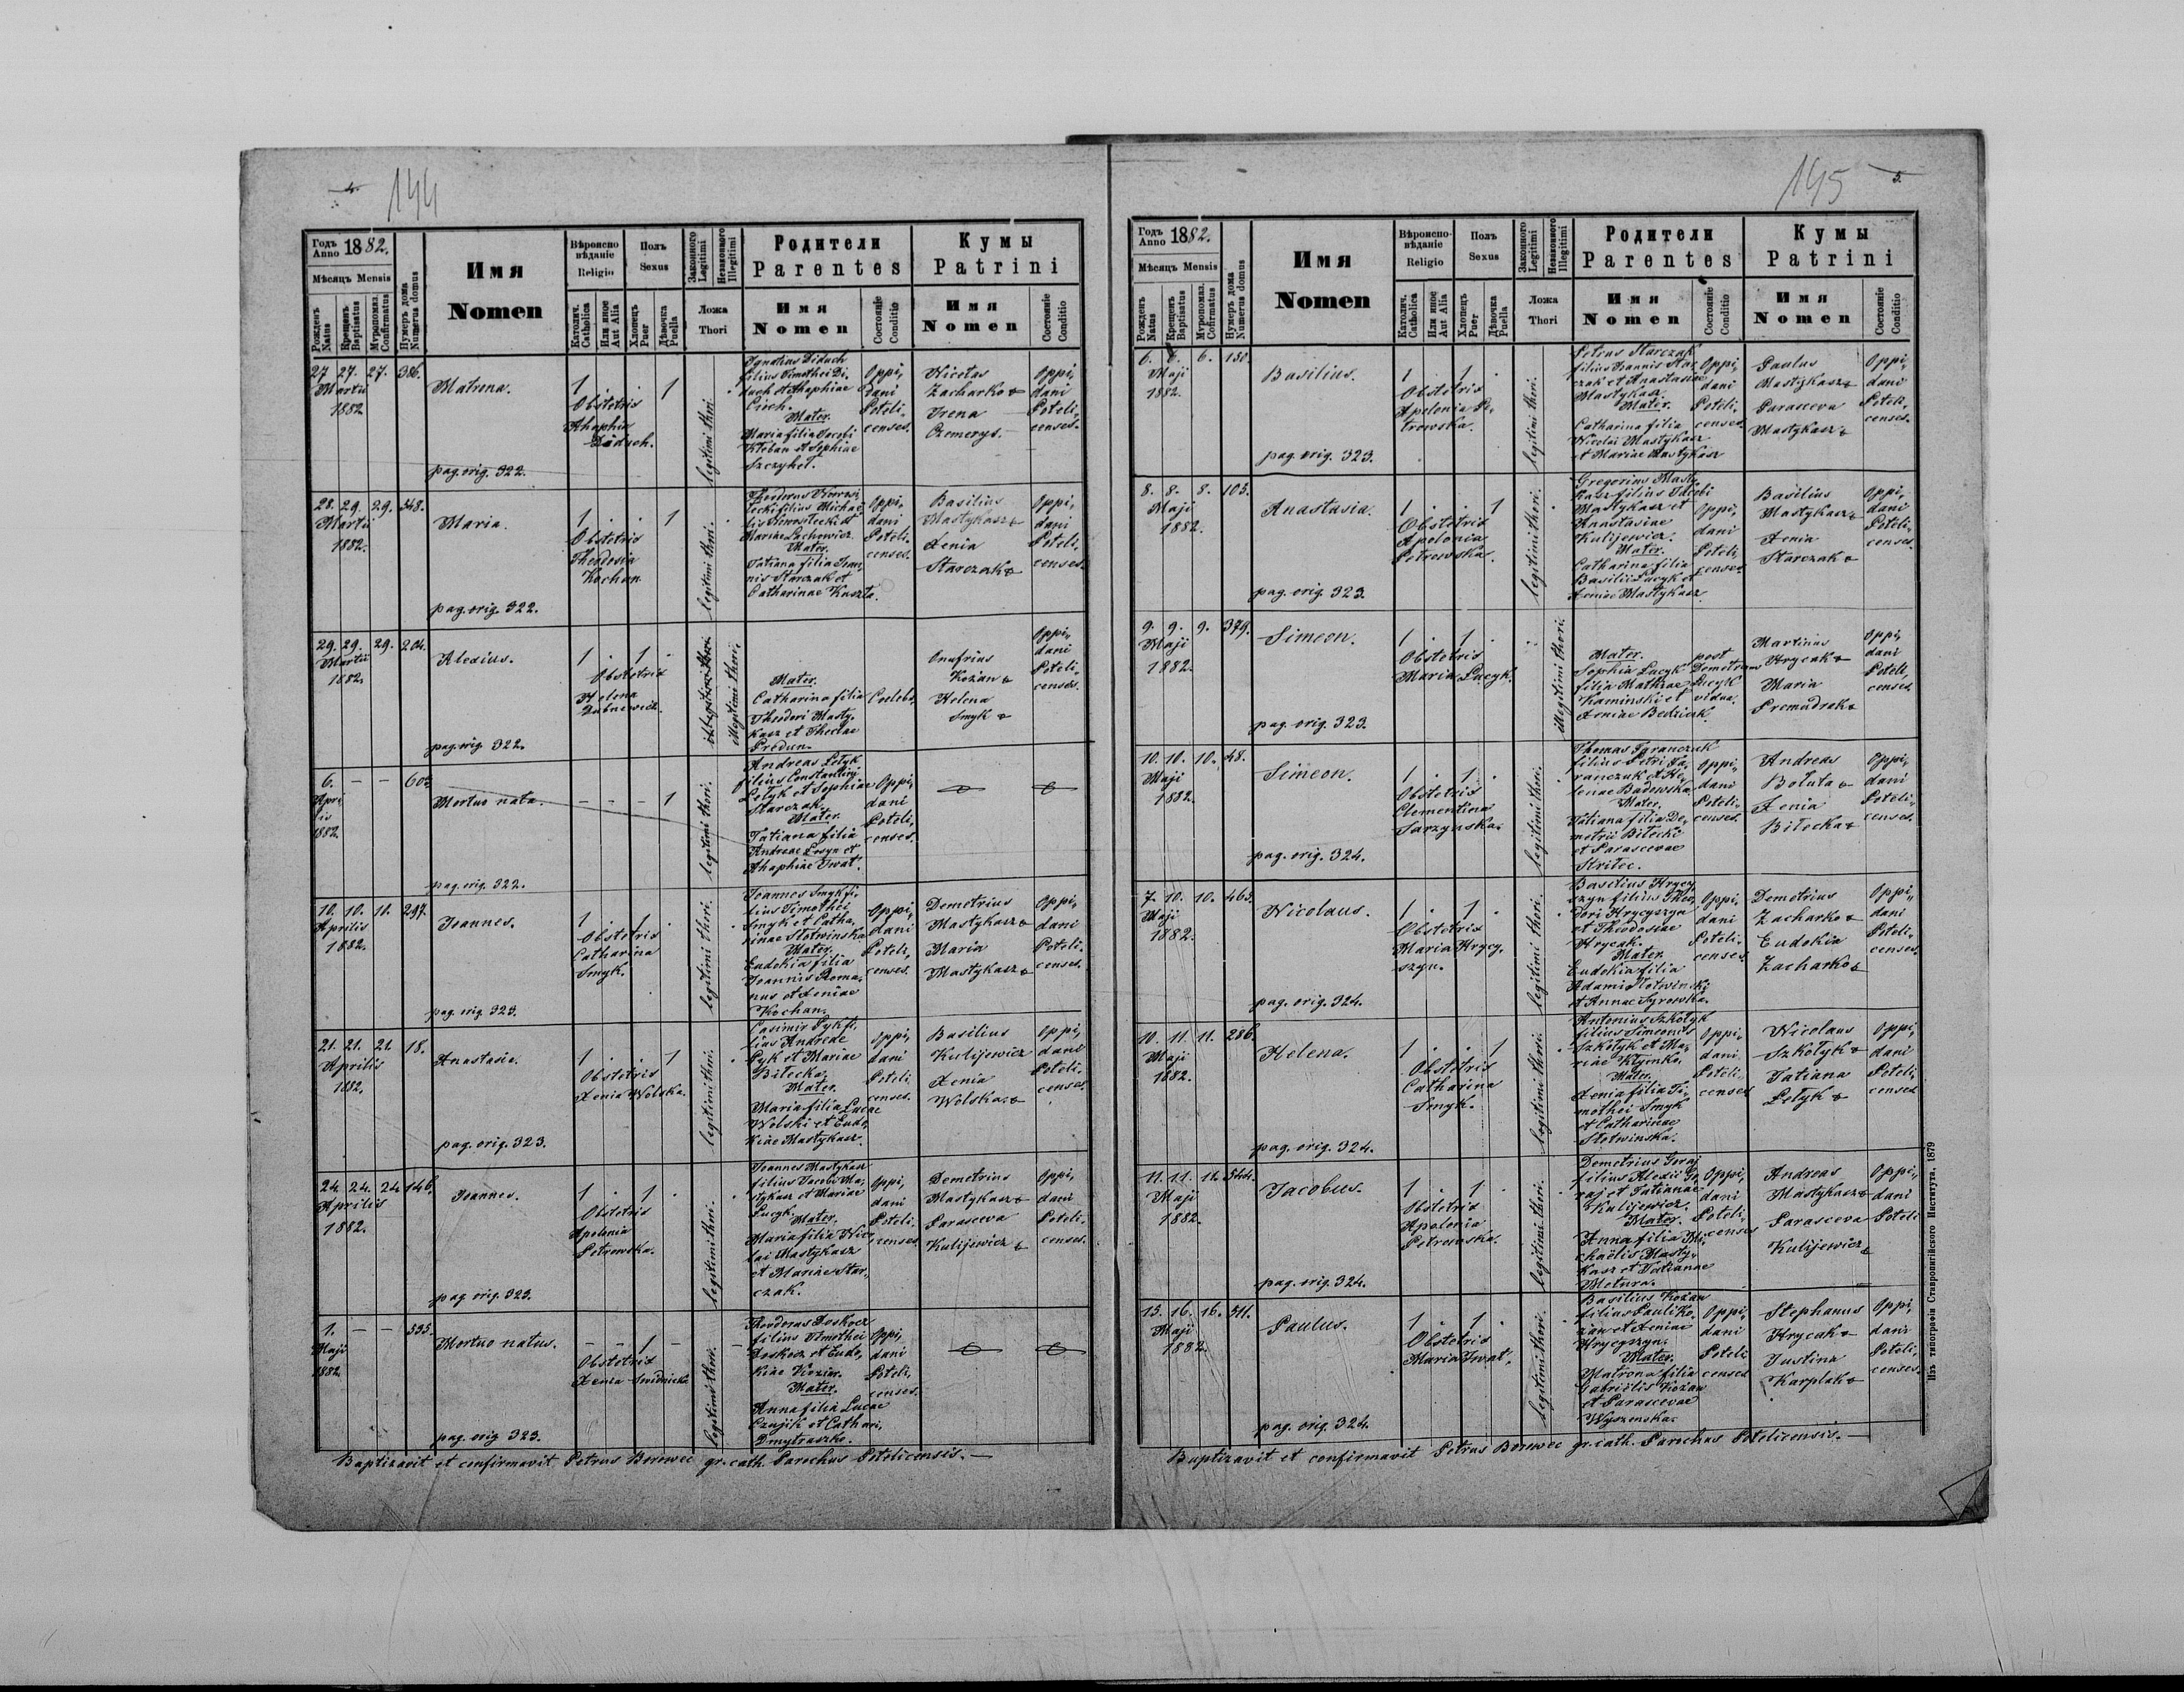 4.
144
Годъ Anno 1882.
Мѣсяцъ Mensis
Рожденъ Natus
Крещенъ Baptisatus
Муропомаз. Confirmatus
Нумеръ дома Numerus domus
Имя
Nomen
Вѣроиспо
вѣданіе
Religio
Католич. Catholica
Или иное Aut Alia
Полъ
Sexus
Хлопецъ Puer
Дѣвочка Puella
Законного Legitimi
Незаконного Illegitimi
Ложа
Thori
Родители
Parentes
Имя
Nomen
Состояніе Conditio
Кумы
Patrini
Имя
Nomen
Состояніе Conditio
27. 27. 27. 386.
Martii
1882
Matrona.
pag. orig. 322.
1 . . 1
Obstetrix
Ahaphia
Diduch.
legitimi thori
Ignatius Diduch
filius Timothei Di-
duch et Ahaphiae
Circh.
Mater.
Maria filia Jacobi
Kleban et Sophiae
Szczyhel.
Oppi,
dani
Poteli-
censes.
Nicetas
Zacharko
Irena
Czmerys.
Oppi,
dani
Poteli-
censes.
28. 29. 29. 348.
Martii
1882.
Maria.
pag. orig. 322.
1 . . 1
Obstetrix
Theodosia
Kochan
legitimi thori.
Mariae Lechowicz
Mater.
Tatiana filia Joan,
nis Starczak et
Catharinae Kuszta.
Oppi,
dani
Poteli-
censes.
Basilius
Mastykasz
Xenia
Starczak
Oppi,
dani
Poteli,
censes.
29. 29. 29. 204.
Martii
1882.
Alexius.
pag. orig. 322.
1 . 1 .
Obstetrix
Helena
Dubnewicz.
illegitimi thori.
Mater.
Catharina filia
Theodori Masty-
kasz et Theclae
Predun.
Coelebs.
Onufrius
Kozan
Helena
Smyk
Oppi,
dani
Poteli,
censes.
6. — — 602.
Apri
lis
1882.
Mortuo nata.
pag. orig. 322.
- - - 1
legitimi thori.
Andreas Letyk
filius Constantini
Letyk et Sophiae
Starczak.
Mater.
Tatiana filia
Andreae Lesyn et
Ahaphiae Iwat.
Oppi,
dani
Poteli-
censes.
10. 10. 11. 297.
Aprilis
1882.
Joannes.
pag. orig. 323.
1 . 1 .
Obstetrix
Catharina
Smyk.
legitimi thori.
Joannes Smyk fi-
lius Timothei
Smyk et Catha,
rinae Slotwinska
Mater.
Eudokia filia
Joannis Roma,
nus et Xeniae
Kochan.
Oppi,
dani
Poteli,
censes.
Demetrius
Mastykasz
Maria
Mastykasz
Oppi,
dani
Poteli-
censes.
21. 21. 21. 18.
Aprilis
1882.
Anastasia.
pag. orig. 323.
1 . . 1
Obstetrix
Xenia Wolska.
legitimi thori.
Casimir Pyk fi,
lius Andreae
Pyk et Mariae
Bilecka.
Mater.
Maria filia Lucae
Wolski et Eudo,
kiae Mastykasz.
Oppi,
dani
Poteli
censes.
Basilius
Kulijewicz
Xenia
Wolska.
Oppi,
dani
Poteli,
censes.
24. 24. 24. 146.
Aprilis
1882.
Joannes.
pag. orig. 323.
1 . 1 .
Obstetrix
Apolonia
Petrowska.
legitimi thori.
Joannes Mastykasz
filius Jacobi Ma,
stykasz et Mariae
Lucyk.
Mater.
Maria filia Nico,
lai Mastykasz
et Mariae Star,
czak.
Oppi,
dani
Poteli,
censes.
Demetrius
Mastykasz
Parasceva
Kulijewicz
Oppi,
dani
Poteli-
censes.
1. — — 535.
Maji
1882
Mortuo natus.
pag. orig. 323.
- - 1 -
Obstetrix
Xenia Swidnicka
legitimi thori.
Theodorus Doskocz
filius Timothei
Doskocz et Eudo,
kiae Kozier.
Mater.
Anna filia Lucae
Czujik et Cathari,
Dmytraszko.
Oppi,
dani
Poteli,
censes.
Baptizavit et confirmavit Petrus Borowec gr. cath. Parochus Potelicensis. —
145
5.
Годъ Anno 1882.
Мѣсяцъ Mensis
Рожденъ Natus
Крещенъ Baptisatus
Муропомаз. Confirmatus
Нумеръ дома Numerus domus
Имя
Nomen
Вѣроиспо-
вѣданіе
Religio
Католич. Catholica
Или иное Aut Alia
Полъ
Sexus
Хлопецъ Puer
Дѣвочка Puella
Законного Legitimi
Незаконного Illegitimi
Ложа
Thori
Родители
Parentes
Имя
Nomen
Состояніе Conditio
Кумы
Patrini
Имя
Nomen
Состояніе Conditio
6. 6. 6. 130.
Maji
1882.
Basilius.
pag. orig. 323.
1 . 1 .
Obstetrix
Apolonia Pe,
trowska.
legitimi thori.
Petrus Starczak
filius Joannis Star
czak et Anastasiae
Mastykasz.
Mater.
Catharina filia
Nicolai Mastykasz
et Mariae Mastykasz
Oppi,
dani
Poteli,
censes.
Paulus
Mastykasz
Parasceva
Mastykasz
Oppi,
dani
Poteli,
censes.
8. 8. 8. 103.
Maji
1882.
Anastasia.
pag. orig. 323.
1 . . 1
Obstetrix
Apolonia
Petrowska.
legitimi thori.
Gregorius Masty,
kasz filius Jacobi
Mastykasz et
Anastasiae
Kulijewicz.
Mater.
Catharina filia
Basilii Lucyk et
Xeniae Mastykasz.
Oppi,
dani
Poteli,
censes.
Basilius
Mastykasz
Xenia
Starczak
Oppi,
dani
Poteli,
censes.
9. 9. 9. 379.
Maji
1882.
Simeon.
pag. orig. 323.
1 . 1 .
Obstetrix
Maria Lucyk.
illegitimi thori.
Mater.
Sophia Lucyk
filia Mathiae
Kaminski et
Xeniae Bedziuk.
post
Demetrium
Lucyk
vidua.
Martinus
Hrycak
Maria
Premudrak
Oppi,
dani
Poteli,
censes.
10. 10. 10. 48.
Maji
1882.
Simeon.
pag. orig. 324.
1 . 1 .
Obstetrix
Clementina
Sarzynska.
legitimi thori.
Thomas Taranczuk
filius Petri Ta-
ranczuk et He,
lenae Badowska.
Mater.
Tatiana filia De,
metrii Bilecki
et Parascevae
Strilec.
Oppi,
dani
Poteli-
censes.
Andreas
Boluta
Xenia
Bilecka
Oppi,
dani
Poteli-
censes.
7. 10. 10. 463.
Maji
1882.
Nicolaus.
pag. orig. 324.
1 . 1 .
Obstetrix
Maria Hrycy,
szyn.
legitimi thori.
Basilius Hrycy,
szyn filius Theo,
dori Hrycyszyn
et Theodosiae
Hrycak.
Mater.
Eudokia filia
Adami Slotwinski
et Annae Syrowka.
Oppi,
dani
Poteli,
censes.
Demetrius
Zacharko
Eudokia
Zacharko
Oppi,
dani
Poteli-
censes.
10. 11. 11. 286.
Maji
1882.
Helena.
pag. orig. 324.
1 . . 1
Obstetrix
Catharina
Smyk.
legitimi thori.
Antonius Szkolyk
filius Simeonis
Szkolyk et Ma,
riae Klymko.
Mater.
Xenia filia Ti-
mothei Smyk
et Catharinae
Slotwinska.
Oppi,
dani
Poteli,
censes
Nicolaus
Szkolyk
Tatiana
Letyk
Oppi,
dani
Poteli-
censes
11. 11. 11. 544.
Maji
1882.
Jacobus.
pag. orig. 324.
1 . 1 .
Obstetrix
Apolonia
Petrowska.
legitimi thori.
Demetrius Goraj
filius Alexii Go
raj et Tatianae
Kulijewicz.
Mater.
Anna filia Mi-
chaëlis Masty-
kasz et Tatianae
Motura.
Oppi,
dani
Poteli,
censes
Andreas
Mastykasz
Parasceva
Kulijewicz
Oppi,
dani
Poteli
15. 16. 16. 511.
Maji
1882.
Paulus.
pag. orig. 324.
1 . 1 .
Obstetrix
Maria Iwat.
legitimi thori.
Basilius Kozan
filius Pauli Ko,
zan et Xeniae
Hrycyszyn.
Mater.
Matrona filia
Gabriëlis Kozan
et Parascevae
Wyszenska.
Oppi,
dani
Poteli
censes
Stephanus
Hrycak
Justina
Karplak
Oppi,
dani
Poteli,
censes.
Baptizavit et confirmavit Petrus Borowec gr. cath. Parochus Potelicensis. —
Изъ типографіи Ставропигійского Института. 1879